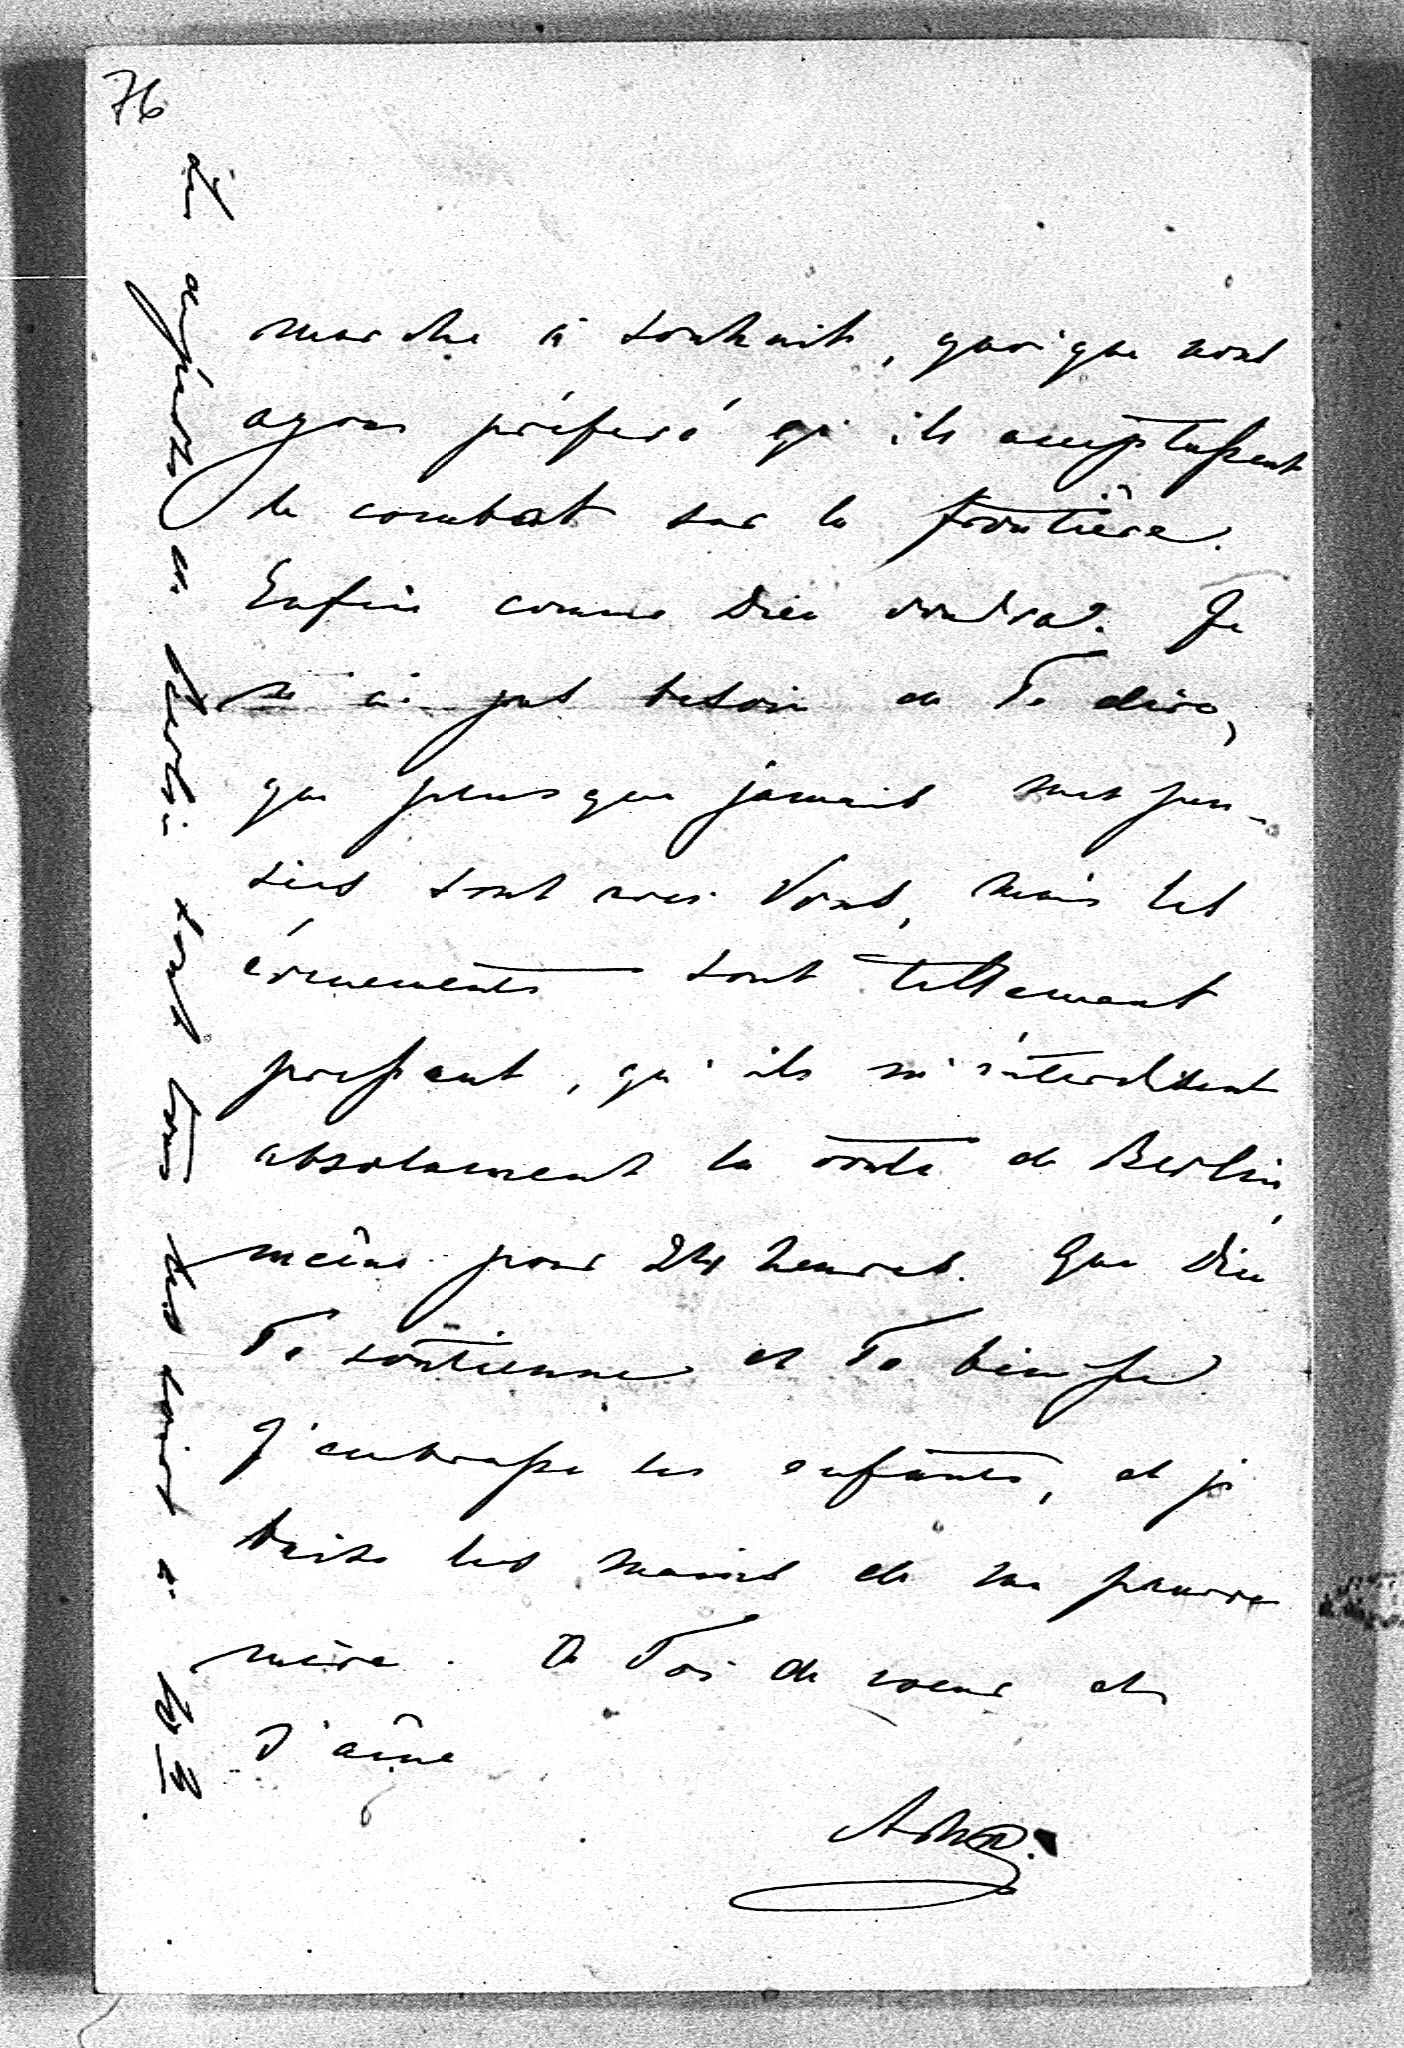 76
marche à souhait, quoique nous
ayons préferé qu'ils acceptassent
le combat sur la frontière.
Enfin comme Dieu voudra. Je
n'ai pas besoin de Te dire,
que plus que jamais mes pen-
sées sont avec Vous, mais les
évenements sont tellement
pressant, qu'ils m'interdisent
absolument la route de Berlin,
même pour 24 heures. Que Dieu
Te soutienne et Te bénisse.
J'embrasse les enfants, et je
baise les mains de ma pauvre
mère. A Toi de coeur et
d'âme
à Berlin sont tous les soirs à